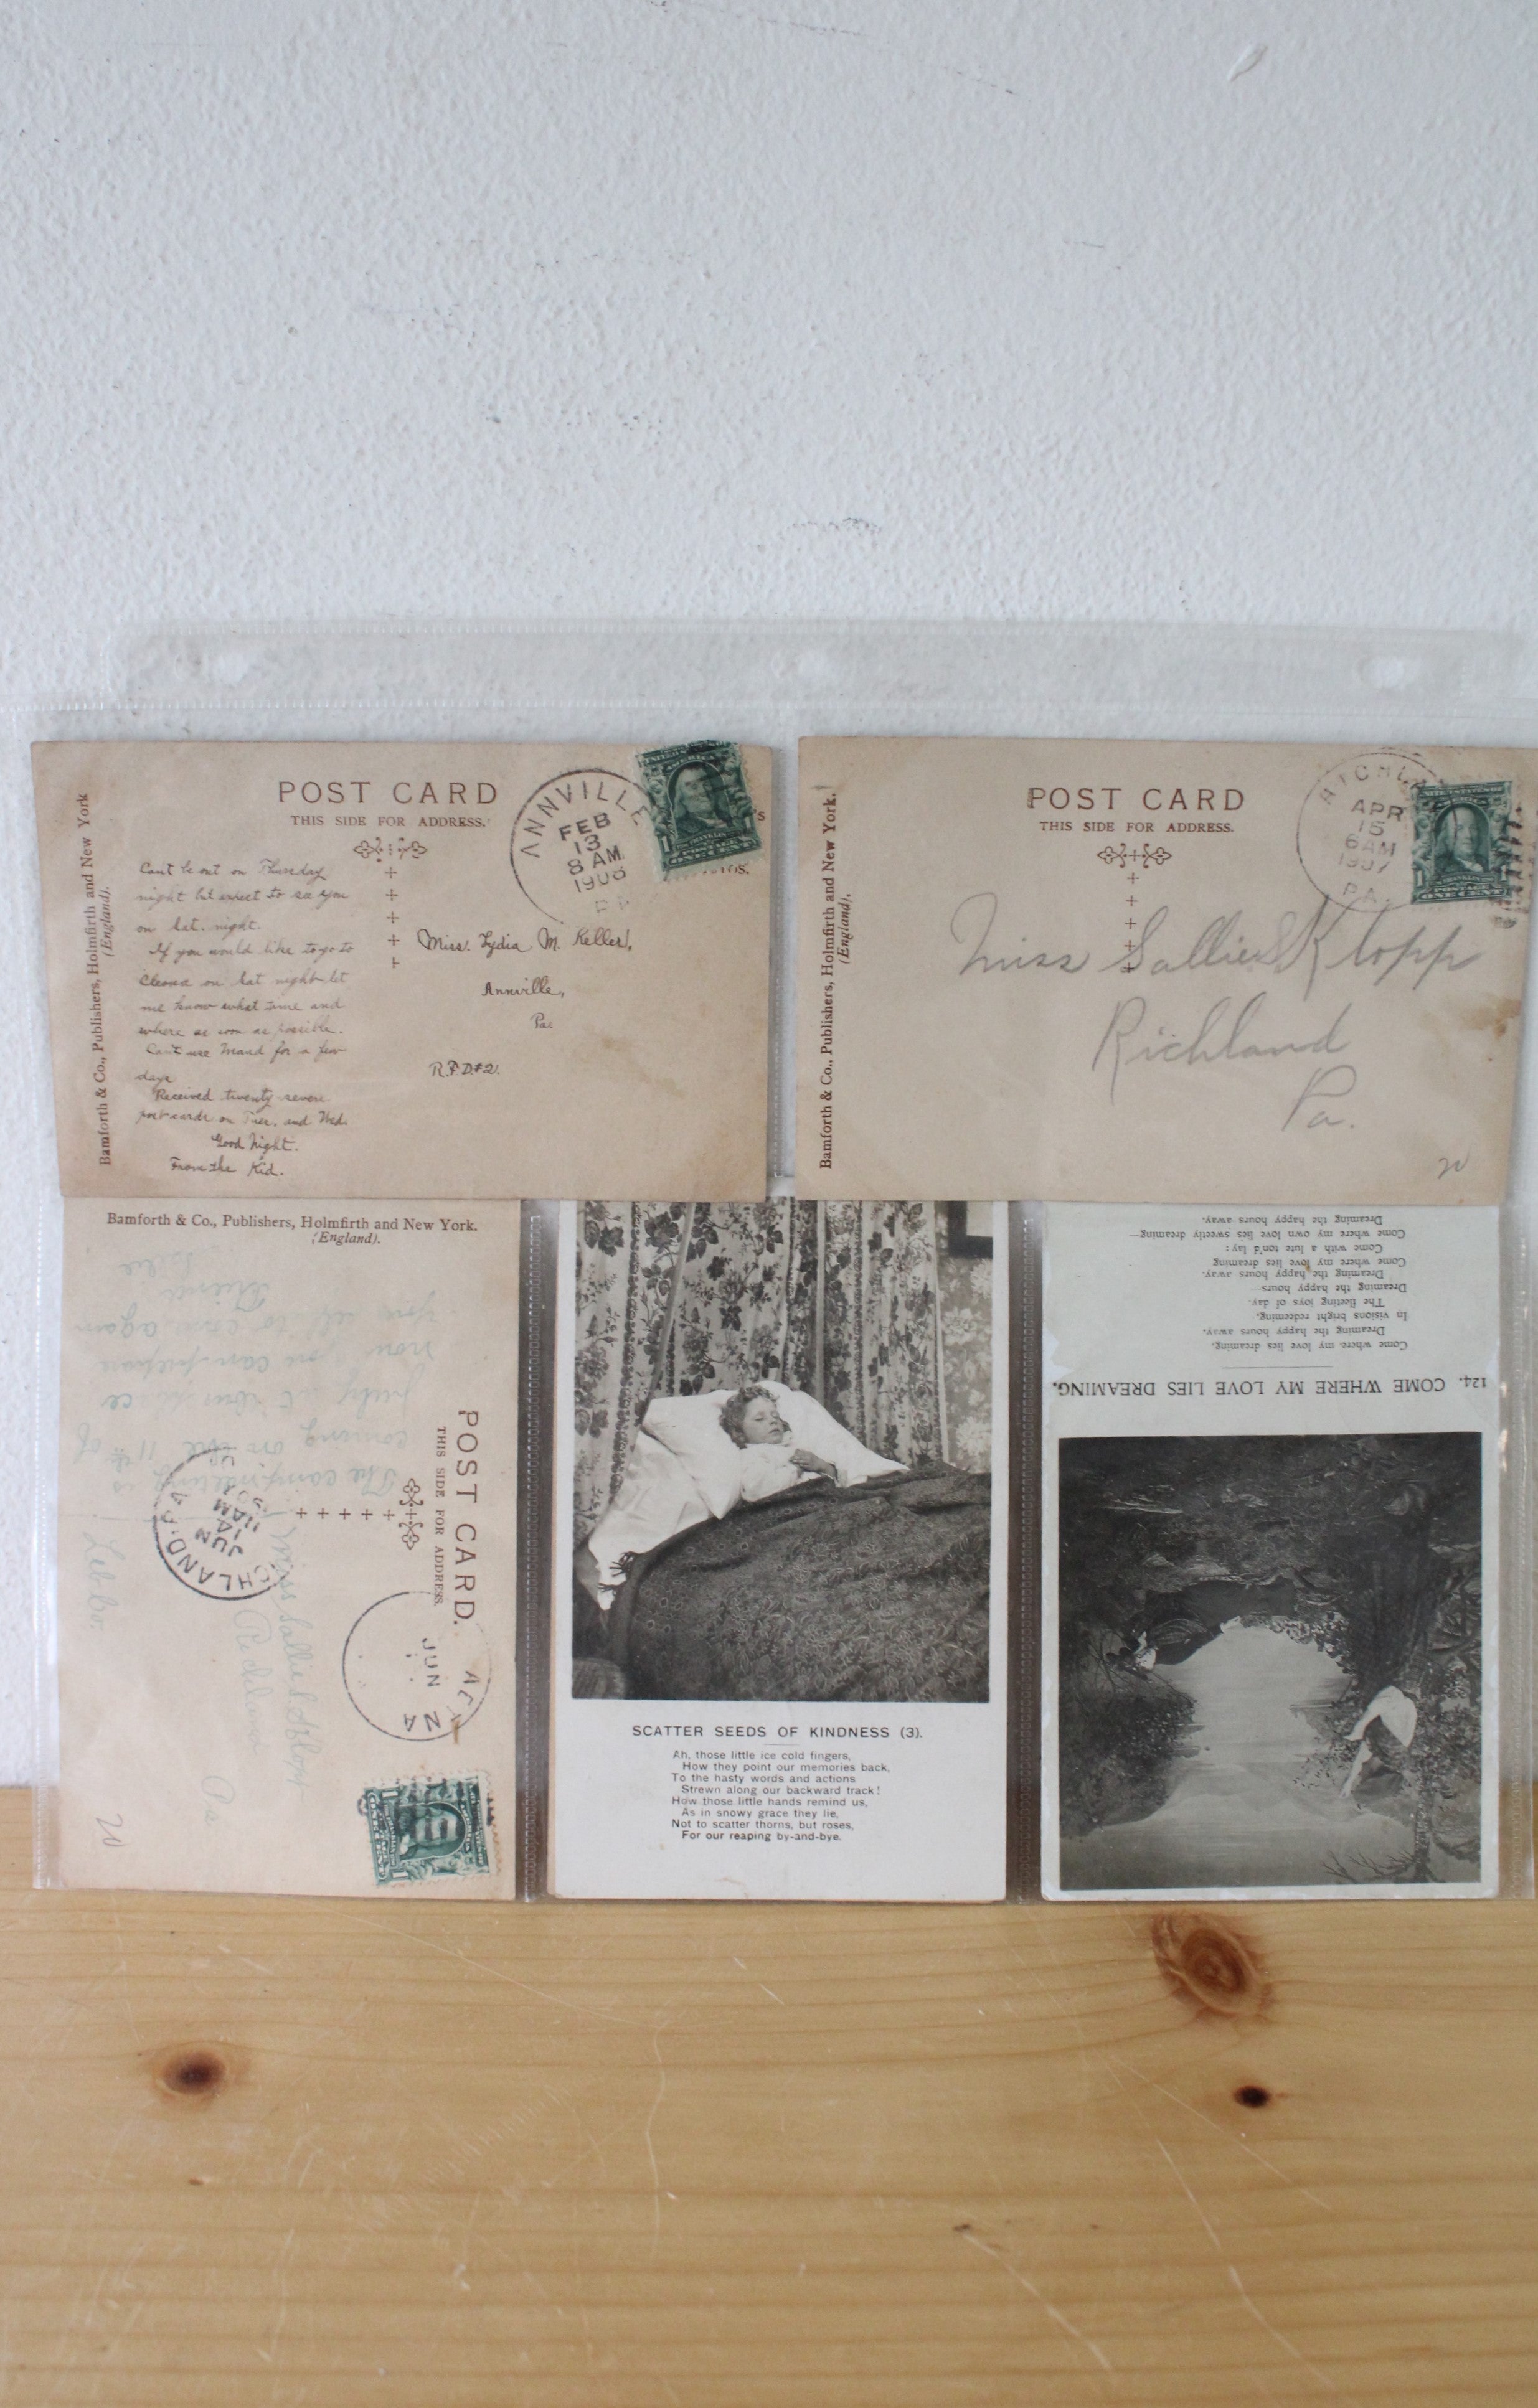 POST CARD
THIS SIDE FOR ADDRESS.
Bamforth & Co., Publishers, Holmfirth and New York
(England).
ANNVILLE
FEB
13
8 AM
1908
Can't be out on Thursday
night but expect to see you
on Sat. night.
If you would like to go to
Cleona on Sat night let
me know what time and
where as soon as possible.
Can't use Maud for a few
days
Received twenty-seven
post cards on Tues. and Wed.
Good Night.
From the Kid.
Miss. Lydia M. Keller,
Annville,
Pa.
R.F.D.#2.
POST CARD
THIS SIDE FOR ADDRESS.
Bamforth & Co., Publishers, Holmfirth and New York.
(England).
APR
15
6 AM
1907
PA.
Miss Sallie Klopp
Richland
Pa.
20
Bamforth & Co., Publishers, Holmfirth and New York.
(England).
POST CARD.
THIS SIDE FOR ADDRESS.
JUN
14
11 AM
JUN
coming on the 11th of
now you can prepare
you self to run again
Miss Sallie
Pa
20
SCATTER SEEDS OF KINDNESS (3).
Ah, those little ice cold fingers,
How they point our memories back,
To the hasty words and actions
Strewn along our backward track!
How those little hands remind us,
As in snowy grace they lie,
Not to scatter thorns, but roses,
For our reaping by-and-bye.
124. COME WHERE MY LOVE LIES DREAMING.
Come where my love lies dreaming,
Dreaming the happy hours away.
In visions bright redeeming,
The fleeting joys of day.
Dreaming the happy hours—
Dreaming the happy hours away.
Come where my love lies dreaming
Come with a lute ton'd lay:
Come where my own love lies sweetly dreaming—
Dreaming the happy hours away.